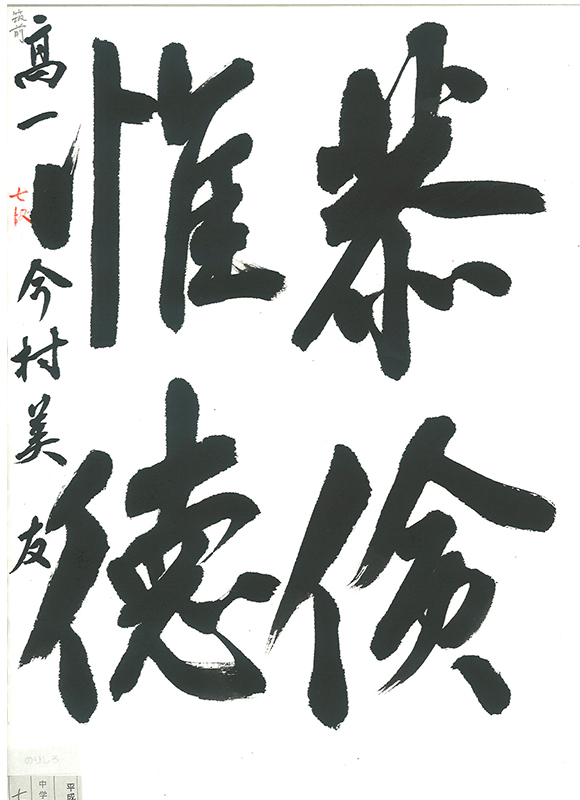 恭儉
惟德
高一 今村美友
筑前
七段
のりしろ
平成
中学
七